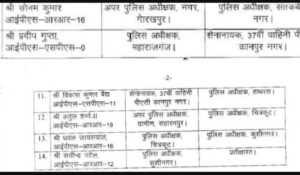 श्री सोनम कुमार
आईपीएस-आरआर-16
अपर पुलिस अधीक्षक, नगर,
गोरखपुर।
पुलिस अधीक्षक,
नगर।
श्री प्रदीप गुप्ता,
आईपीएस-एसपीएस-0
पुलिस अधीक्षक,
महाराजगंज।
सेनानायक, 37वीं वाहिनी
कानपुर नगर।
-2-
11.
श्री विकास कुमार वैद्य
आईपीएस-एसपीएस-11
सेनानायक, 37वीं वाहिनी
पीएसी कानपुर नगर।
पुलिस अधीक्षक, हाथरस।
12.
श्री अतुल शर्मा-II
आईपीएस-आरआर-16
अपर पुलिस अधीक्षक,
ग्रामीण, सहारनपुर।
पुलिस अधीक्षक, चित्रकूट।
13.
श्री धवल जायसवाल,
आईपीएस-आरआर-16
पुलिस अधीक्षक,
चित्रकूट।
पुलिस अधीक्षक, कुशीनगर।
14.
श्री सचीन्द्र पटेल,
आईपीएस-आरआर-12
पुलिस अधीक्षक,
कुशीनगर।
प्रतीक्षारत।